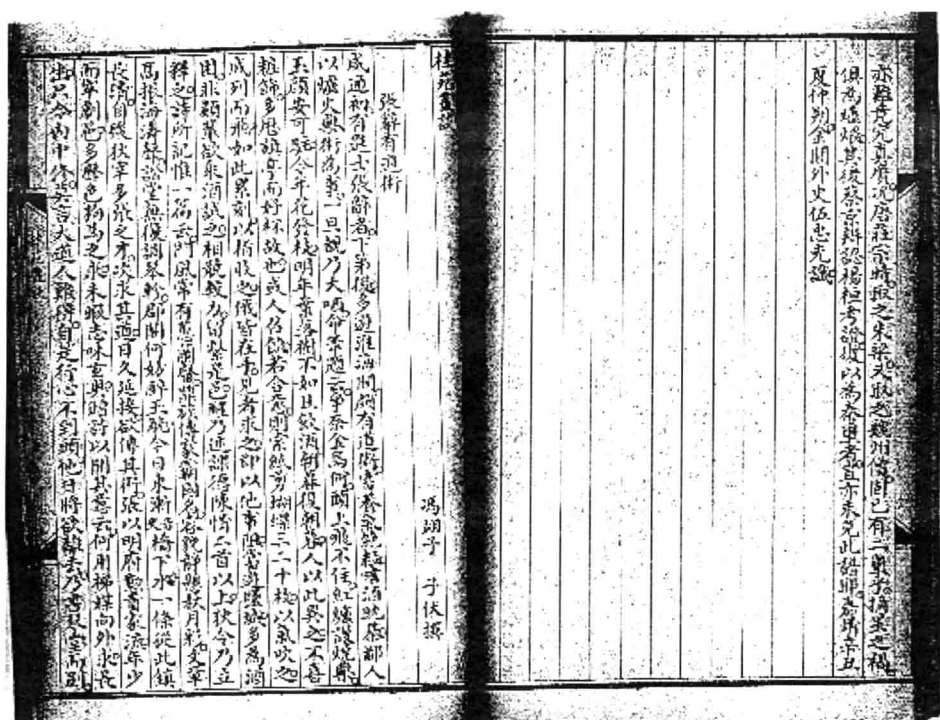 亦難克究真贋況唐莊宗時取之朱梁又取之魏州僧固已有二
俱為煨燼其後蔡京辨認楊桓考證復以為秦璽者豈亦未見此語耶
夏仲朔金閶外史伍忠光識
桂苑叢談
馮翊子 子休撰
張綽有道術
咸通初有進士張綽者下第後多遊淮海間頗有道術常養氣絕粒嗜酒耽棊鄙人
以爐火藥術為事一旦覩乃大哂命筆題云爭奈金烏何頭上飛不住紅爐謾燒藥
玉顔安可駐今年花發枝明年葉落樹不如且飲酒朝暮復朝暮人以此異之不喜
粧飾多歷旗亭而好杯故也或人召飲若合意則索紙剪蛺蝶三二十枚以氣吹之
成列而飛如此累刻以指收之俄皆在手見者求之即以他事阻嘗遊鹽城多為酒
困非類輩欲乘酒試之相競較力留繫是邑醒乃述課德陳情二首以上狄令乃立
釋之詩所記惟一篇云門風常有蕙蘭馨鼎族傳家霸國名容貌靜懸秋月彩文章
高振海濤聲訟堂無復調琴軫郡閣何妨醉玉觥今日東漸橋下水一條從此鎮
長清自後狄宰多張之才次求其道日久延接欲傳其術張以明府勳貴家流年少
而宰劇邑多聲色狗馬之求未暇志味玄奧贈詩以開其意云何用梯媒向外求長
生只合內中修莫言大道人難得自是行心不到頭他日將欲離去乃書琴堂而別